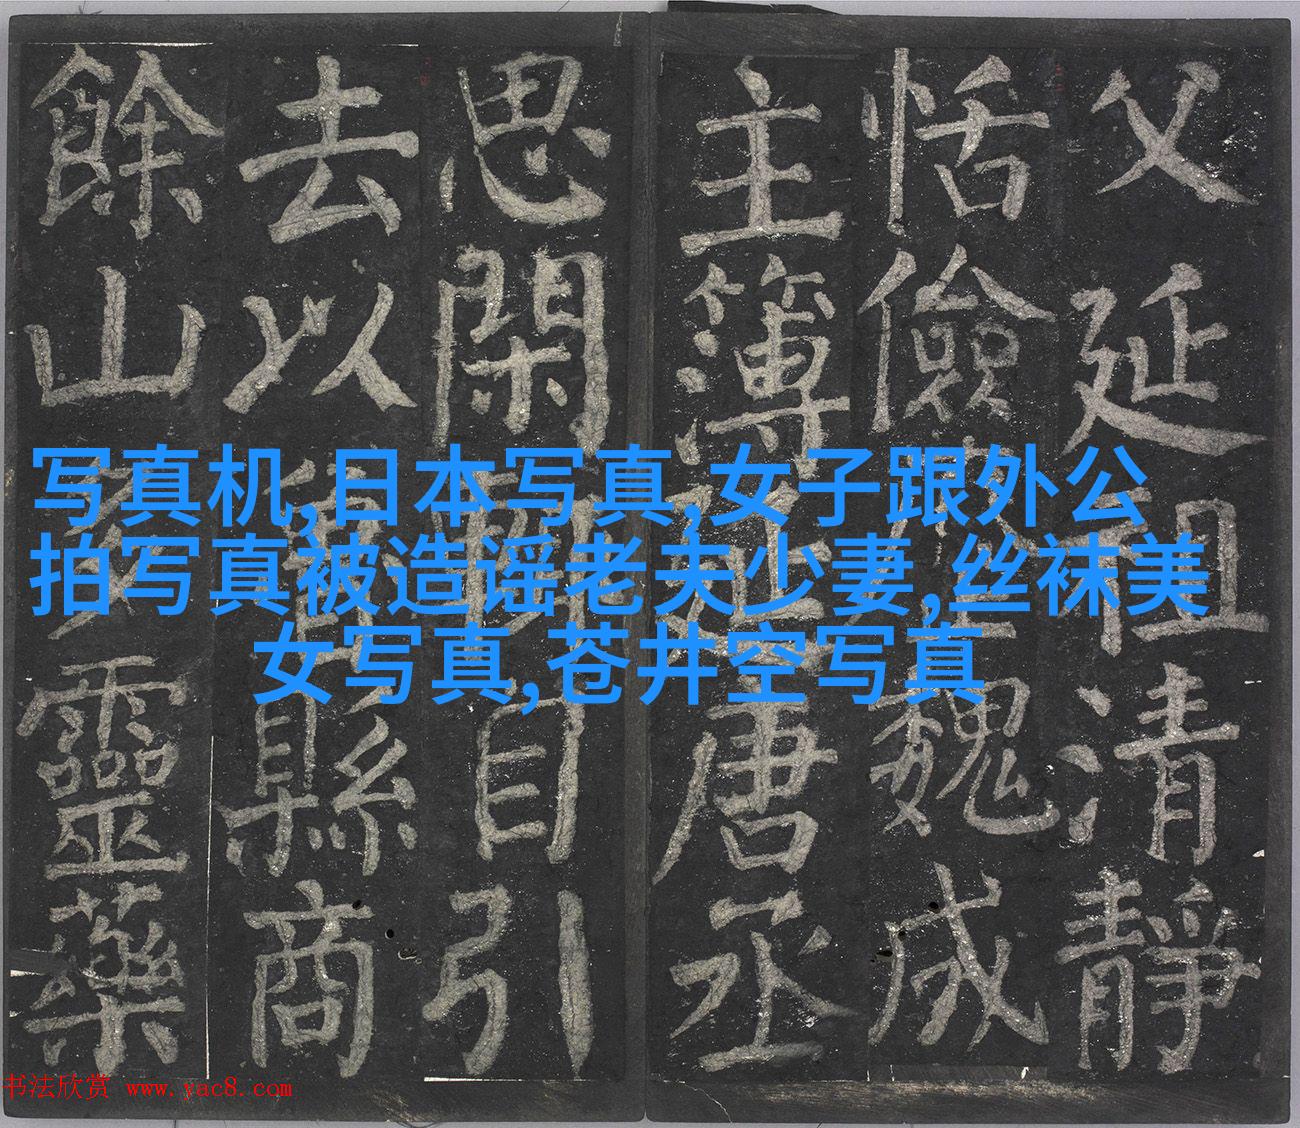 父延祖清靜
恬儉魏成
主簿延唐丞
思閑自引
去以縣商
餘山多靈藥
写真机,日本写真,女子跟外公
拍写真被造谣老夫少妻,丝袜美
女写真,苍井空写真
书法欣赏 www.yac8.com